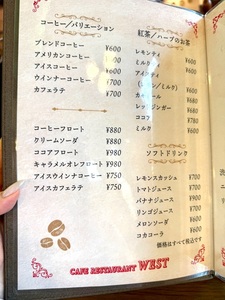 コーヒー／バリエーション
ブレンドコーヒー ¥600
アメリカンコーヒー ¥600
アイスコーヒー ¥600
ウインナーコーヒー ¥700
カフェラテ ¥700
コーヒーフロート ¥880
クリームソーダ ¥880
ココアフロート ¥980
キャラメルオレフロート ¥980
アイスウインナコーヒー ¥750
アイスカフェラテ ¥750
紅茶／ハーブのお茶
レモンティ
ミルク
アイスティ
ココア ¥680
ミルク ¥600
ソフトドリンク
レモンスカッシュ ¥700
トマトジュース ¥700
バナナジュース ¥900
リンゴジュース ¥700
メロンソーダ ¥600
コカコーラ ¥600
価格はすべて税込です
CAFE RESTAURANT WEST